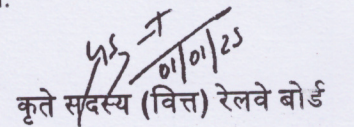 01/01/25
कृते सदस्य (वित्त) रेलवे बोर्ड